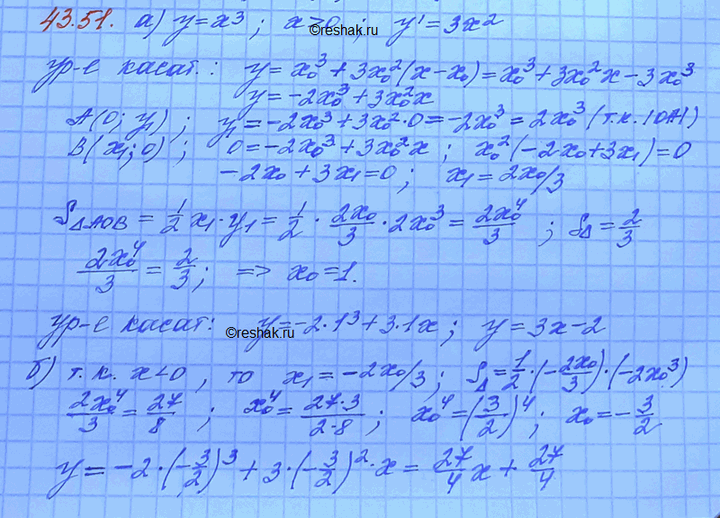 43.51. а) y = x³ ; x > 0 ; y' = 3x²
©reshak.ru
ур-е касат.: y = x₀³ + 3x₀²(x - x₀) = x₀³ + 3x₀²x - 3x₀³
y = -2x₀³ + 3x₀²x
A(0; y₁) ; y₁ = -2x₀³ + 3x₀²·0 = -2x₀³ = 2x₀³ (т.к. |OA|)
B(x₁; 0) ; 0 = -2x₀³ + 3x₀²x ; x₀²(-2x₀ + 3x₁) = 0
-2x₀ + 3x₁ = 0 ; x₁ = 2x₀/3
S△AOB = 1/2 x₁·y₁ = 1/2 · 2x₀/3 · 2x₀³ = 2x₀⁴/3 ; S△ = 2/3
2x₀⁴/3 = 2/3 ; => x₀ = 1.
ур-е касат: y = -2·1³ + 3·1x ; y = 3x - 2
©reshak.ru
б) т.к. x < 0 , то x₁ = -2x₀/3 ; S△ = 1/2·(-2x₀/3)·(-2x₀³)
2x₀⁴/3 = 27/8 ; x₀⁴ = 27·3/2·8 ; x₀⁴ = (3/2)⁴ ; x₀ = -3/2
y = -2·(-3/2)³ + 3·(-3/2)²·x = 27/4 x + 27/4